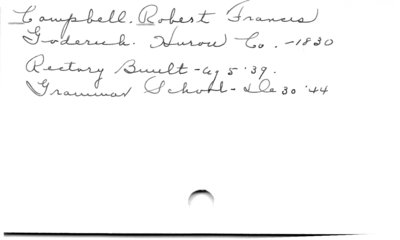 Campbell. Robert Francis
Goderich. Huron Co. -1830
Rectory Built - Ag 5 '39.
Grammar School - De 30 '44